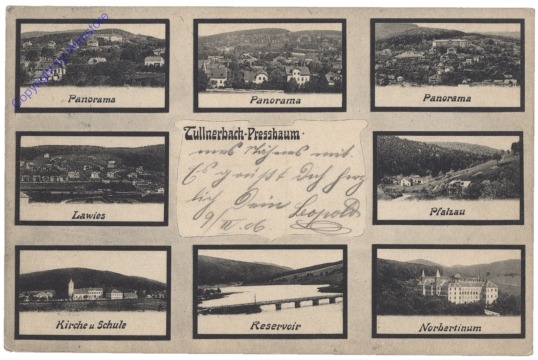 Copyright by Wienstore
Panorama
Panorama
Panorama
Tullnerbach-Pressbaum.
mit.
Es grüßt Dich herz
lich Dein Leopold
9/VI. 06
Lawies
Pfalzau
Kirche u Schule
Reservoir
Norbertinum